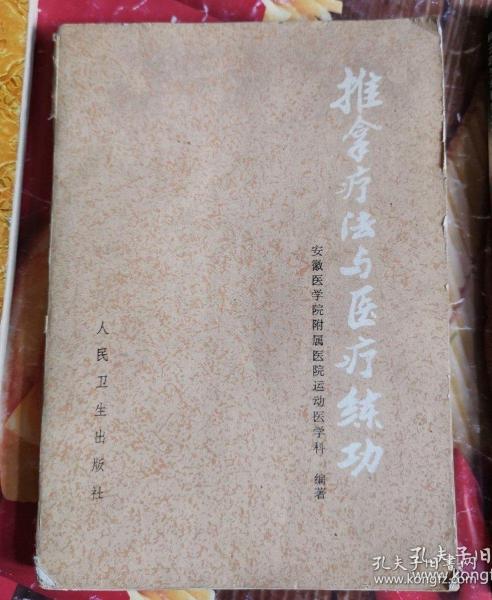 推拿疗法与医疗练功
安徽医学院附属医院运动医学科 编著
人民卫生出版社
孔夫子旧书网
www.kongfz.com
孔夫子旧
kongfz.